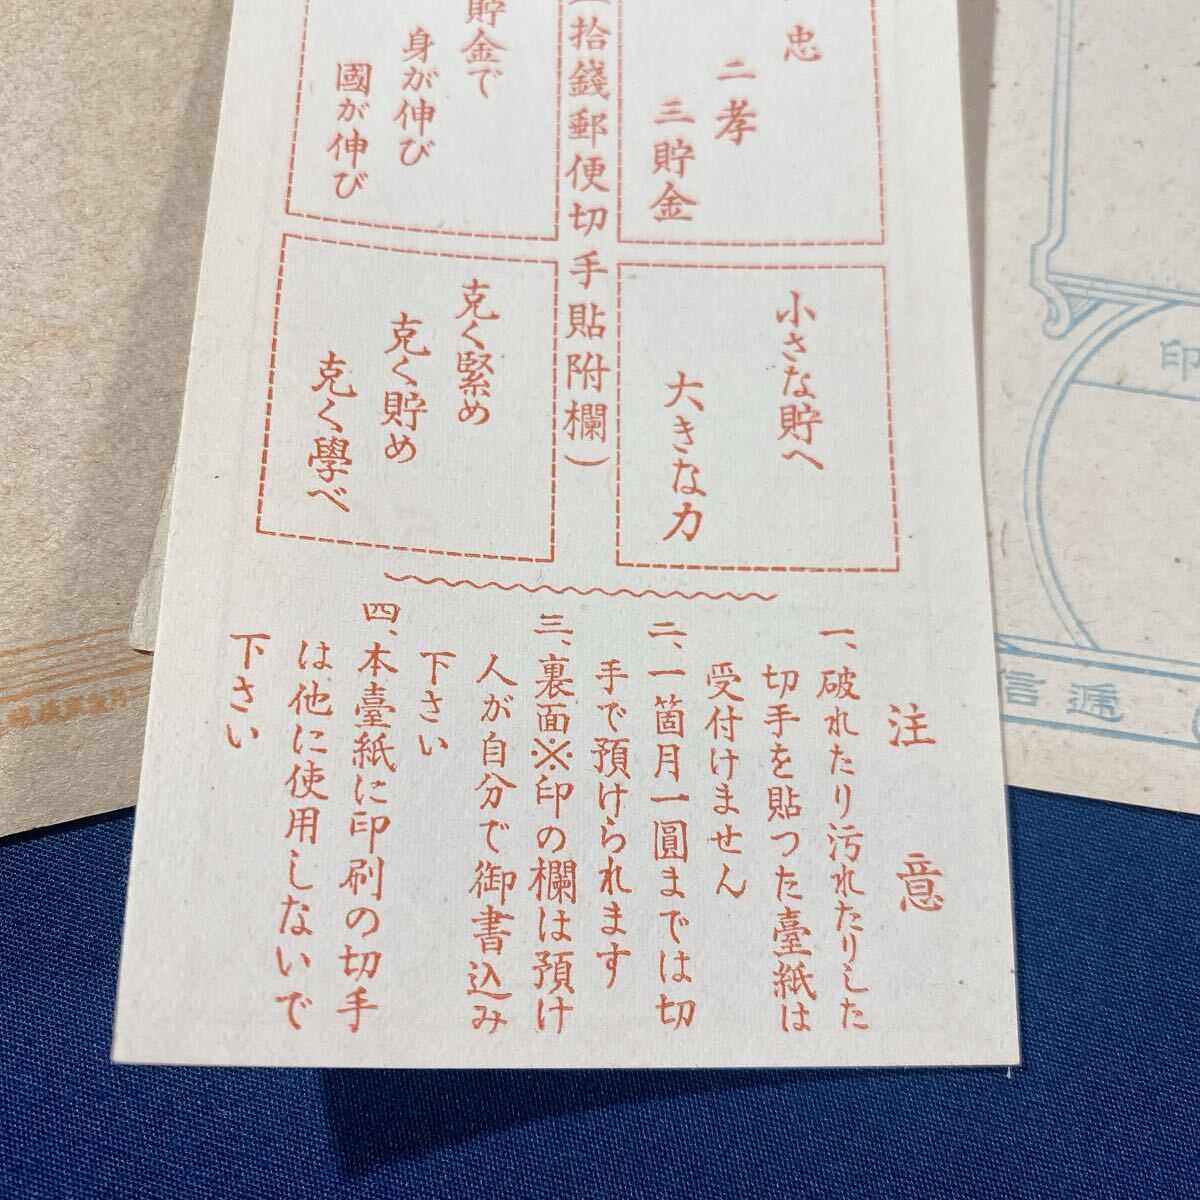 忠
二孝
三貯金
(拾錢郵便切手貼附欄)
貯金で
身が伸び
國が伸び
小さな貯へ
大きな力
克く緊め
克く貯め
克く學べ
注意
一、破れたり汚れたりした
切手を貼つた臺紙は
受付けません
二、一箇月一圓までは切
手で預けられます
三、裏面※印の欄は預け
人が自分で御書込み
下さい
四、本臺紙に印刷の切手
は他に使用しないで
下さい
印
信遞